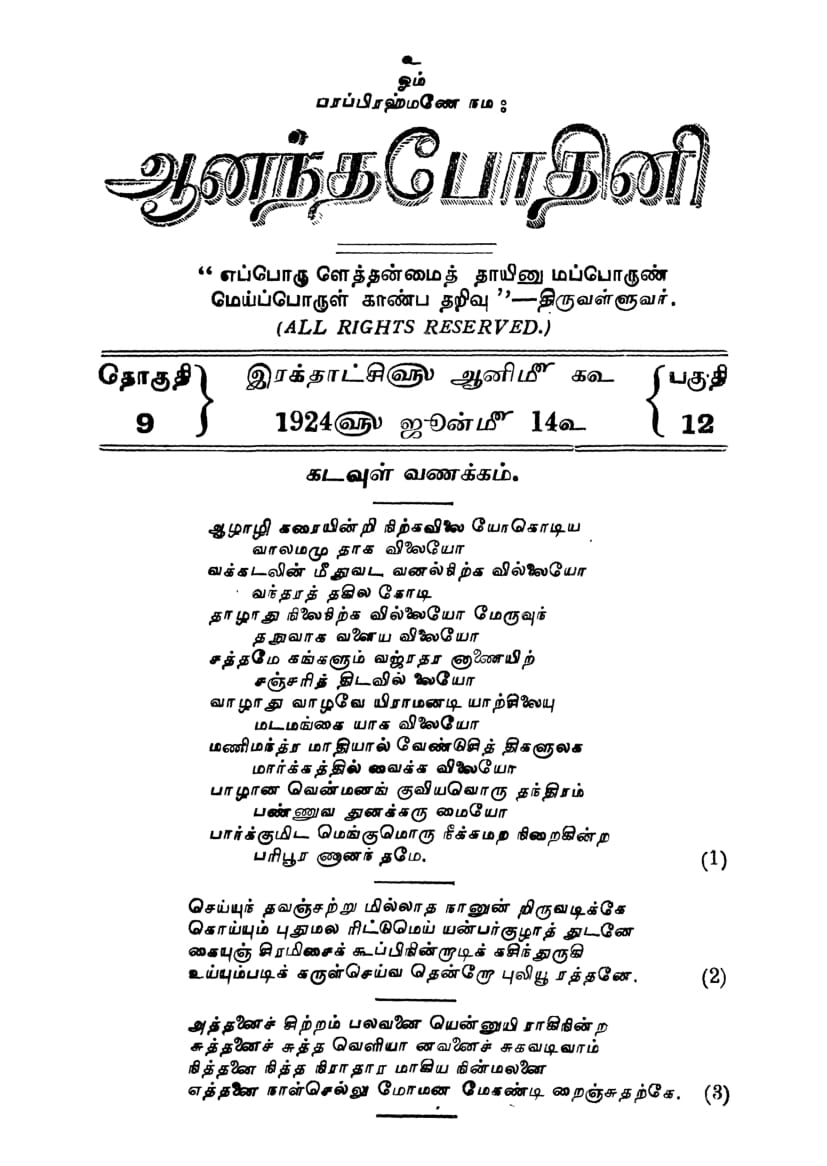 உ
ஓம்
பரப்பிரஹ்மணே நம:
ஆனந்தபோதினி
“ எப்பொரு ளெத்தன்மைத் தாயினு மப்பொருண்
மெய்ப்பொருள் காண்ப தறிவு ”—திருவள்ளுவர்.
(ALL RIGHTS RESERVED.)
தொகுதி 9
இரக்தாட்சி௵ ஆனி௴ க௳
1924௵ ஜூன்௴ 14௳
பகுதி 12
கடவுள் வணக்கம்.
ஆழாழி கரையின்றி நிற்கவிலை யோகொடிய
வாலமமு தாக விலையோ
வக்கடலின் மீதுவட வனல்நிற்க வில்லையோ
வந்தரத் தகில கோடி
தாழாது நிலைநிற்க வில்லையோ மேருவுந்
தநுவாக வளைய விலையோ
சத்தமே கங்களும் வஜ்ரதர னாணையிற்
சஞ்சரித் திடவில் லையோ
வாழாது வாழவே யிராமனடி யாற்சிலையு
மடமங்கை யாக விலையோ
மணிமந்த்ர மாதியால் வேண்டுசித் திகளுலக
மார்க்கத்தில் வைக்க விலையோ
பாழான வென்மனங் குவியவொரு தந்திரம்
பண்ணுவ துனக்கரு மையோ
பார்க்குமிட மெங்குமொரு நீக்கமற நிறைகின்ற
பரிபூர ணானந் தமே. (1)
செய்யுந் தவஞ்சற்று மில்லாத நானுன் றிருவடிக்கே
கொய்யும் புதுமல ரிட்டுமெய் யன்பர்குழாத் துடனே
கையுஞ் சிரமிசைக் கூப்பிநின்றாடிக் கசிந்துருகி
உய்யும்படிக் கருள்செய்வ தென்றோ புலியூ ரத்தனே. (2)
அத்தனைச் சிற்றம் பலவனை யென்னுயி ராகிநின்ற
சுத்தனைச் சுத்த வெளியா னவனைச் சுகவடிவாம்
நித்தனை நித்த நிராதார மாகிய நின்மலனை
எத்தனை நாள்செல்லு மோமன மேகண்டி றைஞ்சுதற்கே. (3)